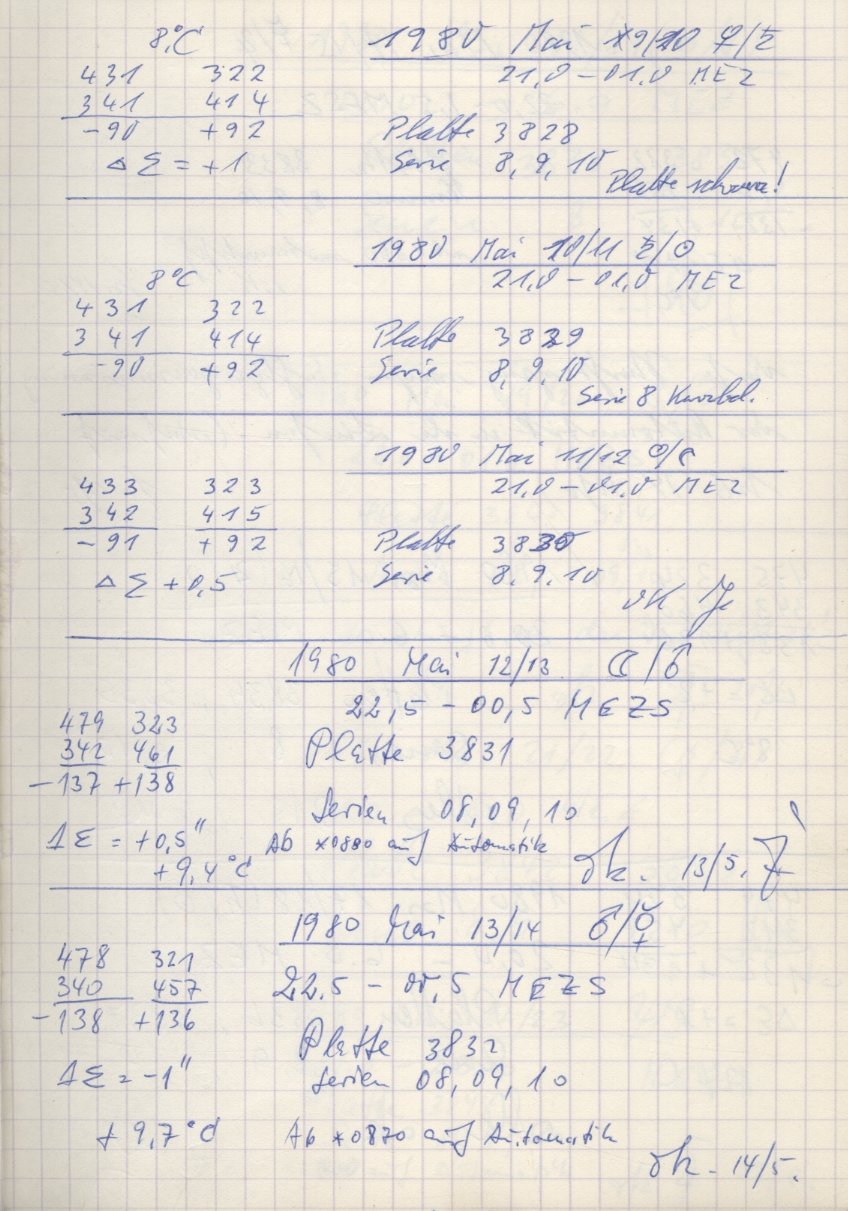 8°C
1980 Mai 09/10 ♀/♄
431 322
21,0 – 01,0 MEZ
341 414
-90 +92
Platte 3828
Δ Σ = +1
Serie 8, 9, 10
Platte schwarz!
1980 Mai 10/11 ♄/☉
8°C
21,0 – 01,0 MEZ
431 322
341 414
Platte 3829
-90 +92
Serie 8, 9, 10
Serie 8
1980 Mai 11/12 ☉/☾
433 323
21,0 – 01,0 MEZ
342 415
-91 +92
Platte 3830
Δ Σ +0,5
Serie 8, 9, 10
OK
1980 Mai 12/13 ☾/♂
22,5 – 00,5 MEZS
479 323
342 461
Platte 3831
-137 +138
Serien 08, 09, 10
ΔΣ = +0,5"
Ab *0880 auf Automatik
+9,4°C
Ok. 13/5.
1980 Mai 13/14 ♂/☿
478 321
340 457
22.5 – 00,5 MEZS
-138 +136
Platte 3832
ΔΣ = -1"
Serien 08, 09, 10
+ 9,7°C
Ab *0870 auf Automatik
Ok - 14/5.